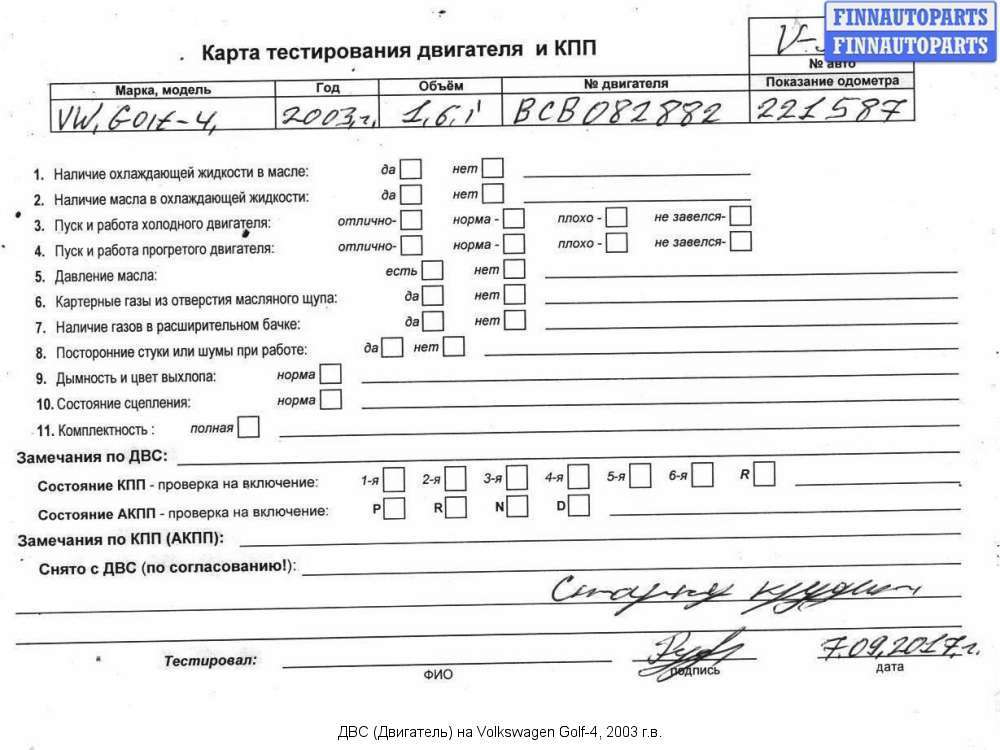 FINNAUTOPARTS
FINNAUTOPARTS
Карта тестирования двигателя и КПП
V-
№ авто
Марка, модель Год Объём № двигателя Показание одометра
VW, Golf-4, 2003 г. 1,6 i BCB082882 221587
1. Наличие охлаждающей жидкости в масле: да нет
2. Наличие масла в охлаждающей жидкости: да нет
3. Пуск и работа холодного двигателя: отлично- норма - плохо - не завелся-
4. Пуск и работа прогретого двигателя: отлично- норма - плохо - не завелся-
5. Давление масла: есть нет
6. Картерные газы из отверстия масляного щупа: да нет
7. Наличие газов в расширительном бачке: да нет
8. Посторонние стуки или шумы при работе: да нет
9. Дымность и цвет выхлопа: норма
10. Состояние сцепления: норма
11. Комплектность : полная
Замечания по ДВС:
Состояние КПП - проверка на включение: 1-я 2-я 3-я 4-я 5-я 6-я R
Состояние АКПП - проверка на включение: P R N D
Замечания по КПП (АКПП):
Снято с ДВС (по согласованию!):
Тестировал: 7.09.2017 г.
ФИО подпись дата
ДВС (Двигатель) на Volkswagen Golf-4, 2003 г.в.